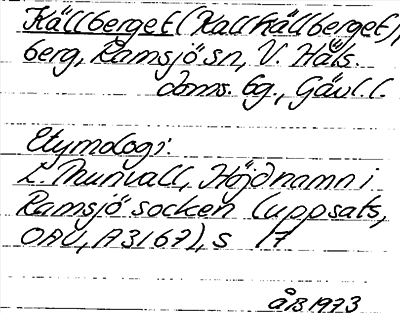 Källberget (Kallkällberget),
berg, Ramsjö sn, V. Häls.
doms. bg., Gävl. l.
Etymologi:
L. Thunvall, Höjdnamn i
Ramsjö socken (uppsats,
OAU, A 3167), s 17
åB 1973